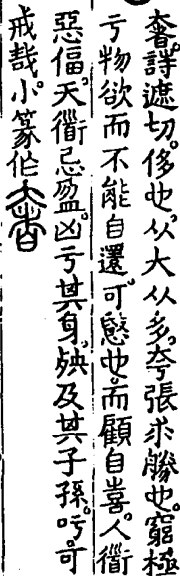 奢。詩遮切。侈也。从大从多。夸張求勝也。窮極
亏物欲而不能自還。可愍也。而顧自喜。人衟
惡偪。天衟忌盈。凶亏其身。殃及其子孫。吁。可
戒哉。小篆作奢